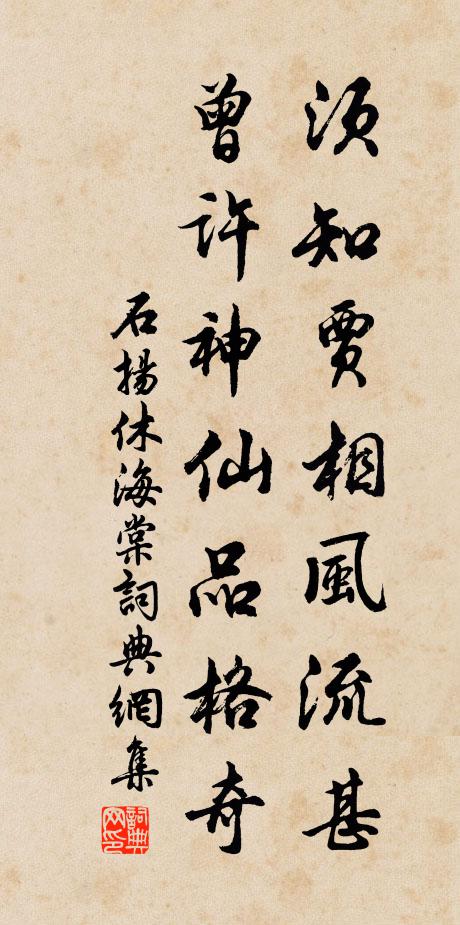 須知賈相風流甚
曾許神仙品格奇
石揚休海棠詞典網集
詞典网印